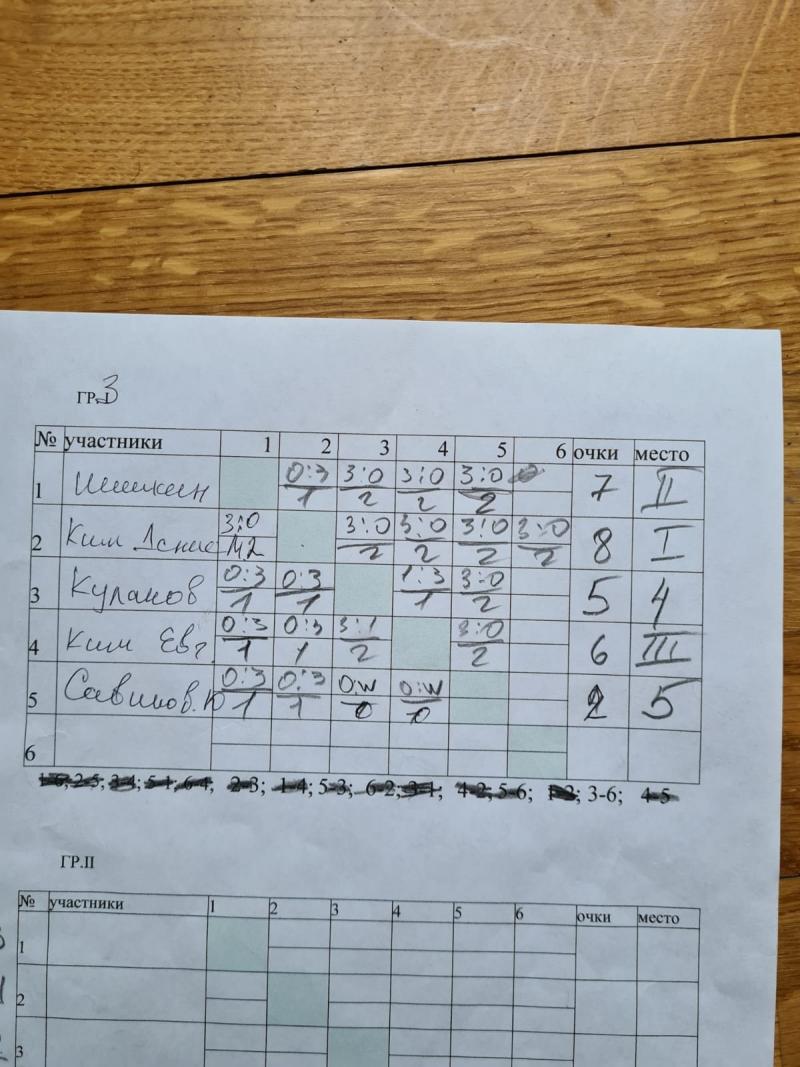 ГР. 3
№ участники 1 2 3 4 5 6 очки место
1 Шишкин 0:3 1 3:0 2 3:0 2 3:0 2 7 II
2 Ким 3:0 2 3:0 2 3:0 2 3:0 2 3:0 2 8 I
3 Куланов 0:3 1 0:3 1 1:3 1 3:0 2 5 4
4 Ким Евг 0:3 1 0:3 1 3:1 2 3:0 2 6 III
5 Савинов. Ю 0:3 1 0:3 1 0:W 0 0:W 0 2 5
6
1-6; 2-5; 3-4; 5-1; 6-4; 2-3; 1-4; 5-3; 6-2; 3-1; 4-2; 5-6; 1-2; 3-6; 4-5
ГР.II
№ участники 1 2 3 4 5 6 очки место
1
2
3